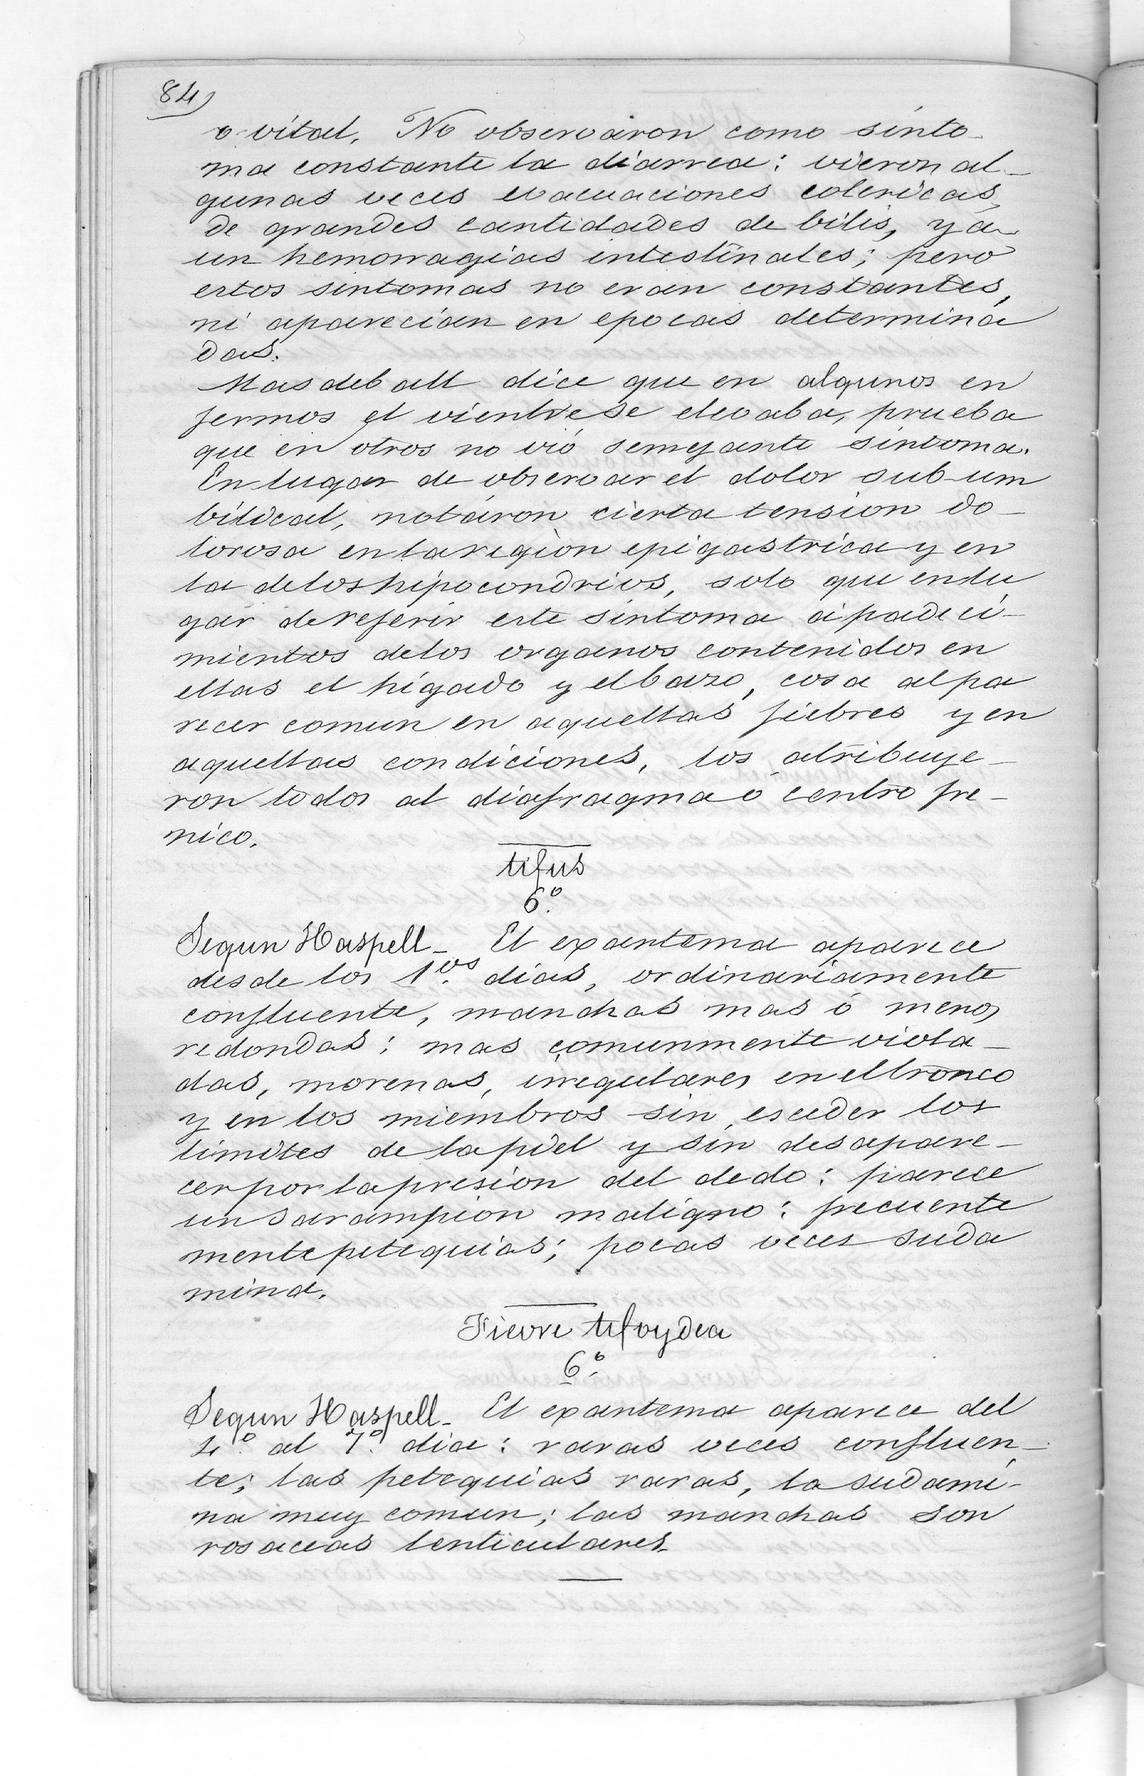 84)
o vital. No observaron como sinto-
ma constante la diarrea: vieron al-
gunas veces evacuaciones colericas
de grandes cantidades de bilis, y á-
un hemorragias intestinales; pero
estos sintomas no eran constantes,
ni aparecian en epocas determina
das.
Masdeball dice que en algunos en
fermos el vientre se elevaba, prueba
que en otros no vió semejante sintoma.
En lugar de observar el dolor sub-um
bilical, notáron cierta tension do-
lorosa en la region epigastrica y en
la de los hipocondrios, solo que en lu
gar de referir este sintoma á padeci-
mientos de los organos contenidos en
ellas el hígado y el bazo, cosa al pa
recer comun en aquellas fiebres y en
aquellas condiciones, los atribuye-
ron todos al diafragma ó centro fre-
nico.
tifus
6.º
Segun Haspell_ El exantema aparece
desde los 1.ros dias, ordinariamente
confluente, manchas mas ó menos
redondas: mas comunmente viola-
das, morenas, irregulares en el tronco
y en los miembros sin esceder los
limites de la piel y sin desapare-
cer por la presion del dedo: parece
un sarampion maligno: frecuente
mente petequias; pocas veces suda
mina.
Fievre tifoydea
6.º
Segun Haspell_ El exantema aparece del
4.º al 7.º dia: raras veces confluen-
te; las petequias raras, la sudami-
na muy comun; las manchas son
rosaceas lenticulares.